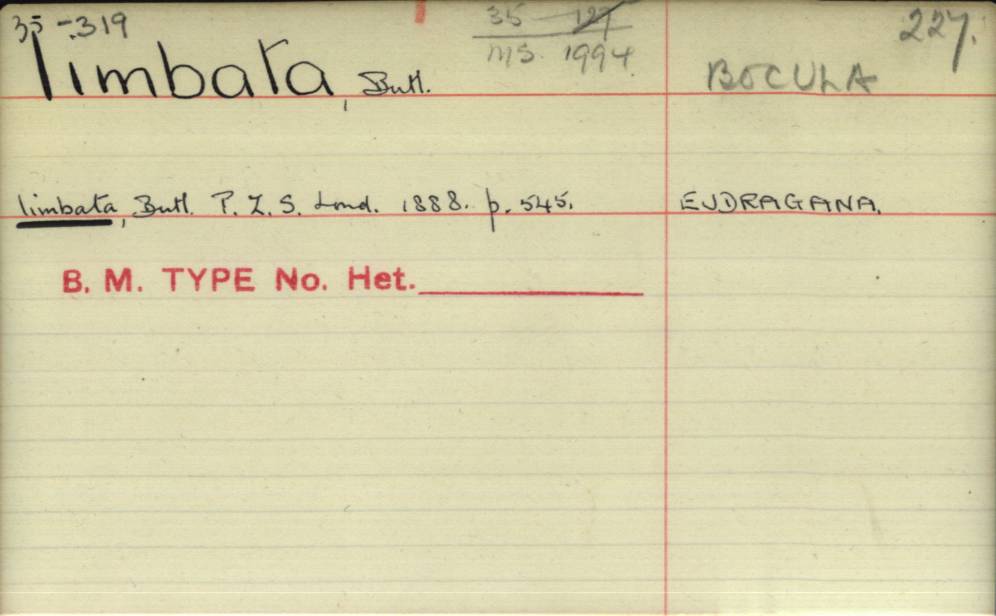 35-319
35 127 227.
limbata, Butl. MS. 1994. BOCULA
limbata, Butl. P. Z. S. Lond. 1888. p. 545. EUDRAGANA.
B. M. TYPE No. Het.